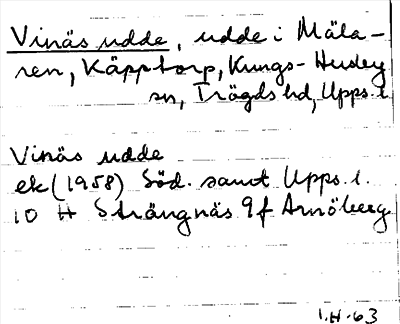 Vinäs udde, udde i Mäla-
ren, Käpptorp, Kungs-Husby
sn, Trögds hd, Upps. l.
Vinäs udde
ek (1958) Söd. samt Upps. l.
10 H Strängnäs 9f Arnöberg
I.H-63